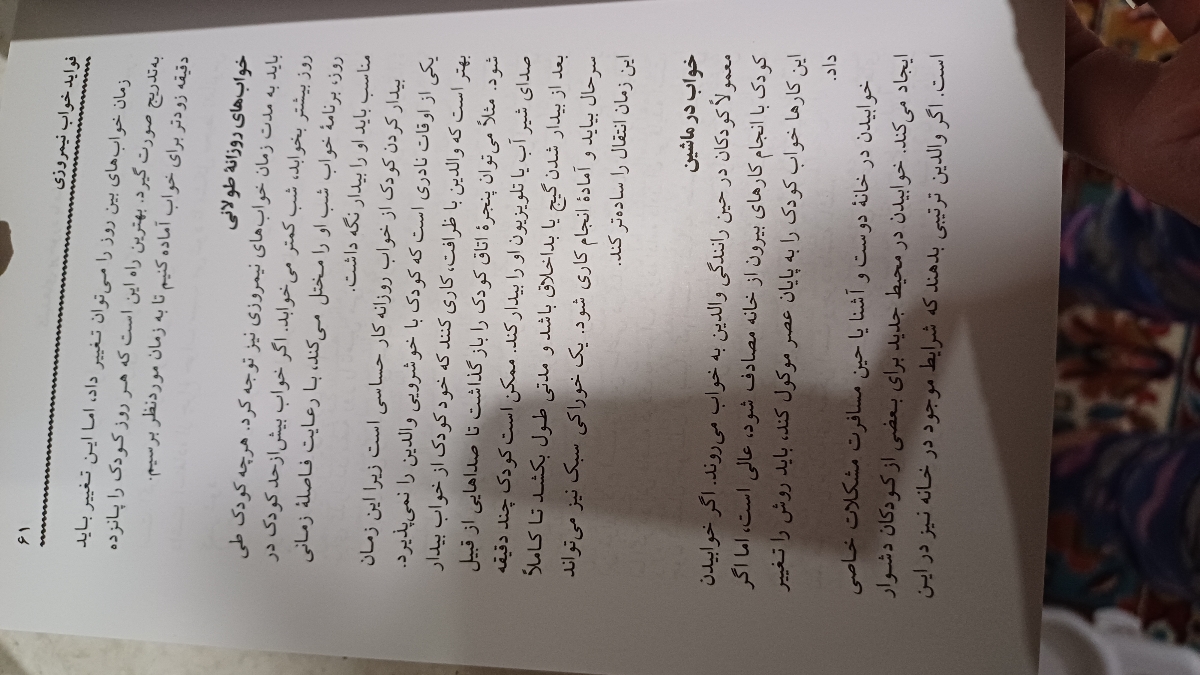 فواید خواب نیمروزی
۶۱
زمان خواب‌های بین روز را می‌توان تغییر داد، اما این تغییر باید
به‌تدریج صورت گیرد. بهترین راه این است که هر روز کودک را پانزده
دقیقه زودتر برای خواب آماده کنیم تا به زمان موردنظر برسیم.
خواب‌های روزانهٔ طولانی
باید به مدت زمان خواب‌های نیمروزی نیز توجه کرد. هرچه کودک طی
روز بیشتر بخوابد، شب کمتر می‌خوابد. اگر خواب بیش‌ازحد کودک در
روز، برنامهٔ خواب شب او را مختل می‌کند، با رعایت فاصلهٔ زمانی
مناسب باید او را بیدار نگه داشت.
بیدار کردن کودک از خواب روزانه کار حساسی است زیرا این زمان
یکی از اوقات نادری است که کودک با خوشرویی والدین را نمی‌پذیرد.
بهتر است که والدین با ظرافت، کاری کنند که خود کودک از خواب بیدار
شود. مثلاً می‌توان پنجرهٔ اتاق کودک را باز گذاشت تا صداهایی از قبیل
صدای شیر آب یا تلویزیون او را بیدار کند. ممکن است کودک چند دقیقه
بعد از بیدار شدن گیج یا بداخلاق باشد و مدتی طول بکشد تا کاملاً
سرحال بیاید و آمادهٔ انجام کاری شود. یک خوراکی سبک نیز می‌تواند
این زمان انتقال را ساده‌تر کند.
خواب در ماشین
معمولاً کودکان در حین رانندگی والدین به خواب می‌روند. اگر خوابیدن
کودک با انجام کارهای بیرون از خانه مصادف شود، عالی است، اما اگر
این کارها خواب کودک را به پایان عصر موکول کند، باید روش را تغییر
داد.
خوابیدن در خانهٔ دوست و آشنا یا حین مسافرت مشکلات خاصی
ایجاد می‌کند. خوابیدن در محیط جدید برای بعضی از کودکان دشوار
است. اگر والدین ترتیبی بدهند که شرایط موجود در خانه نیز در این